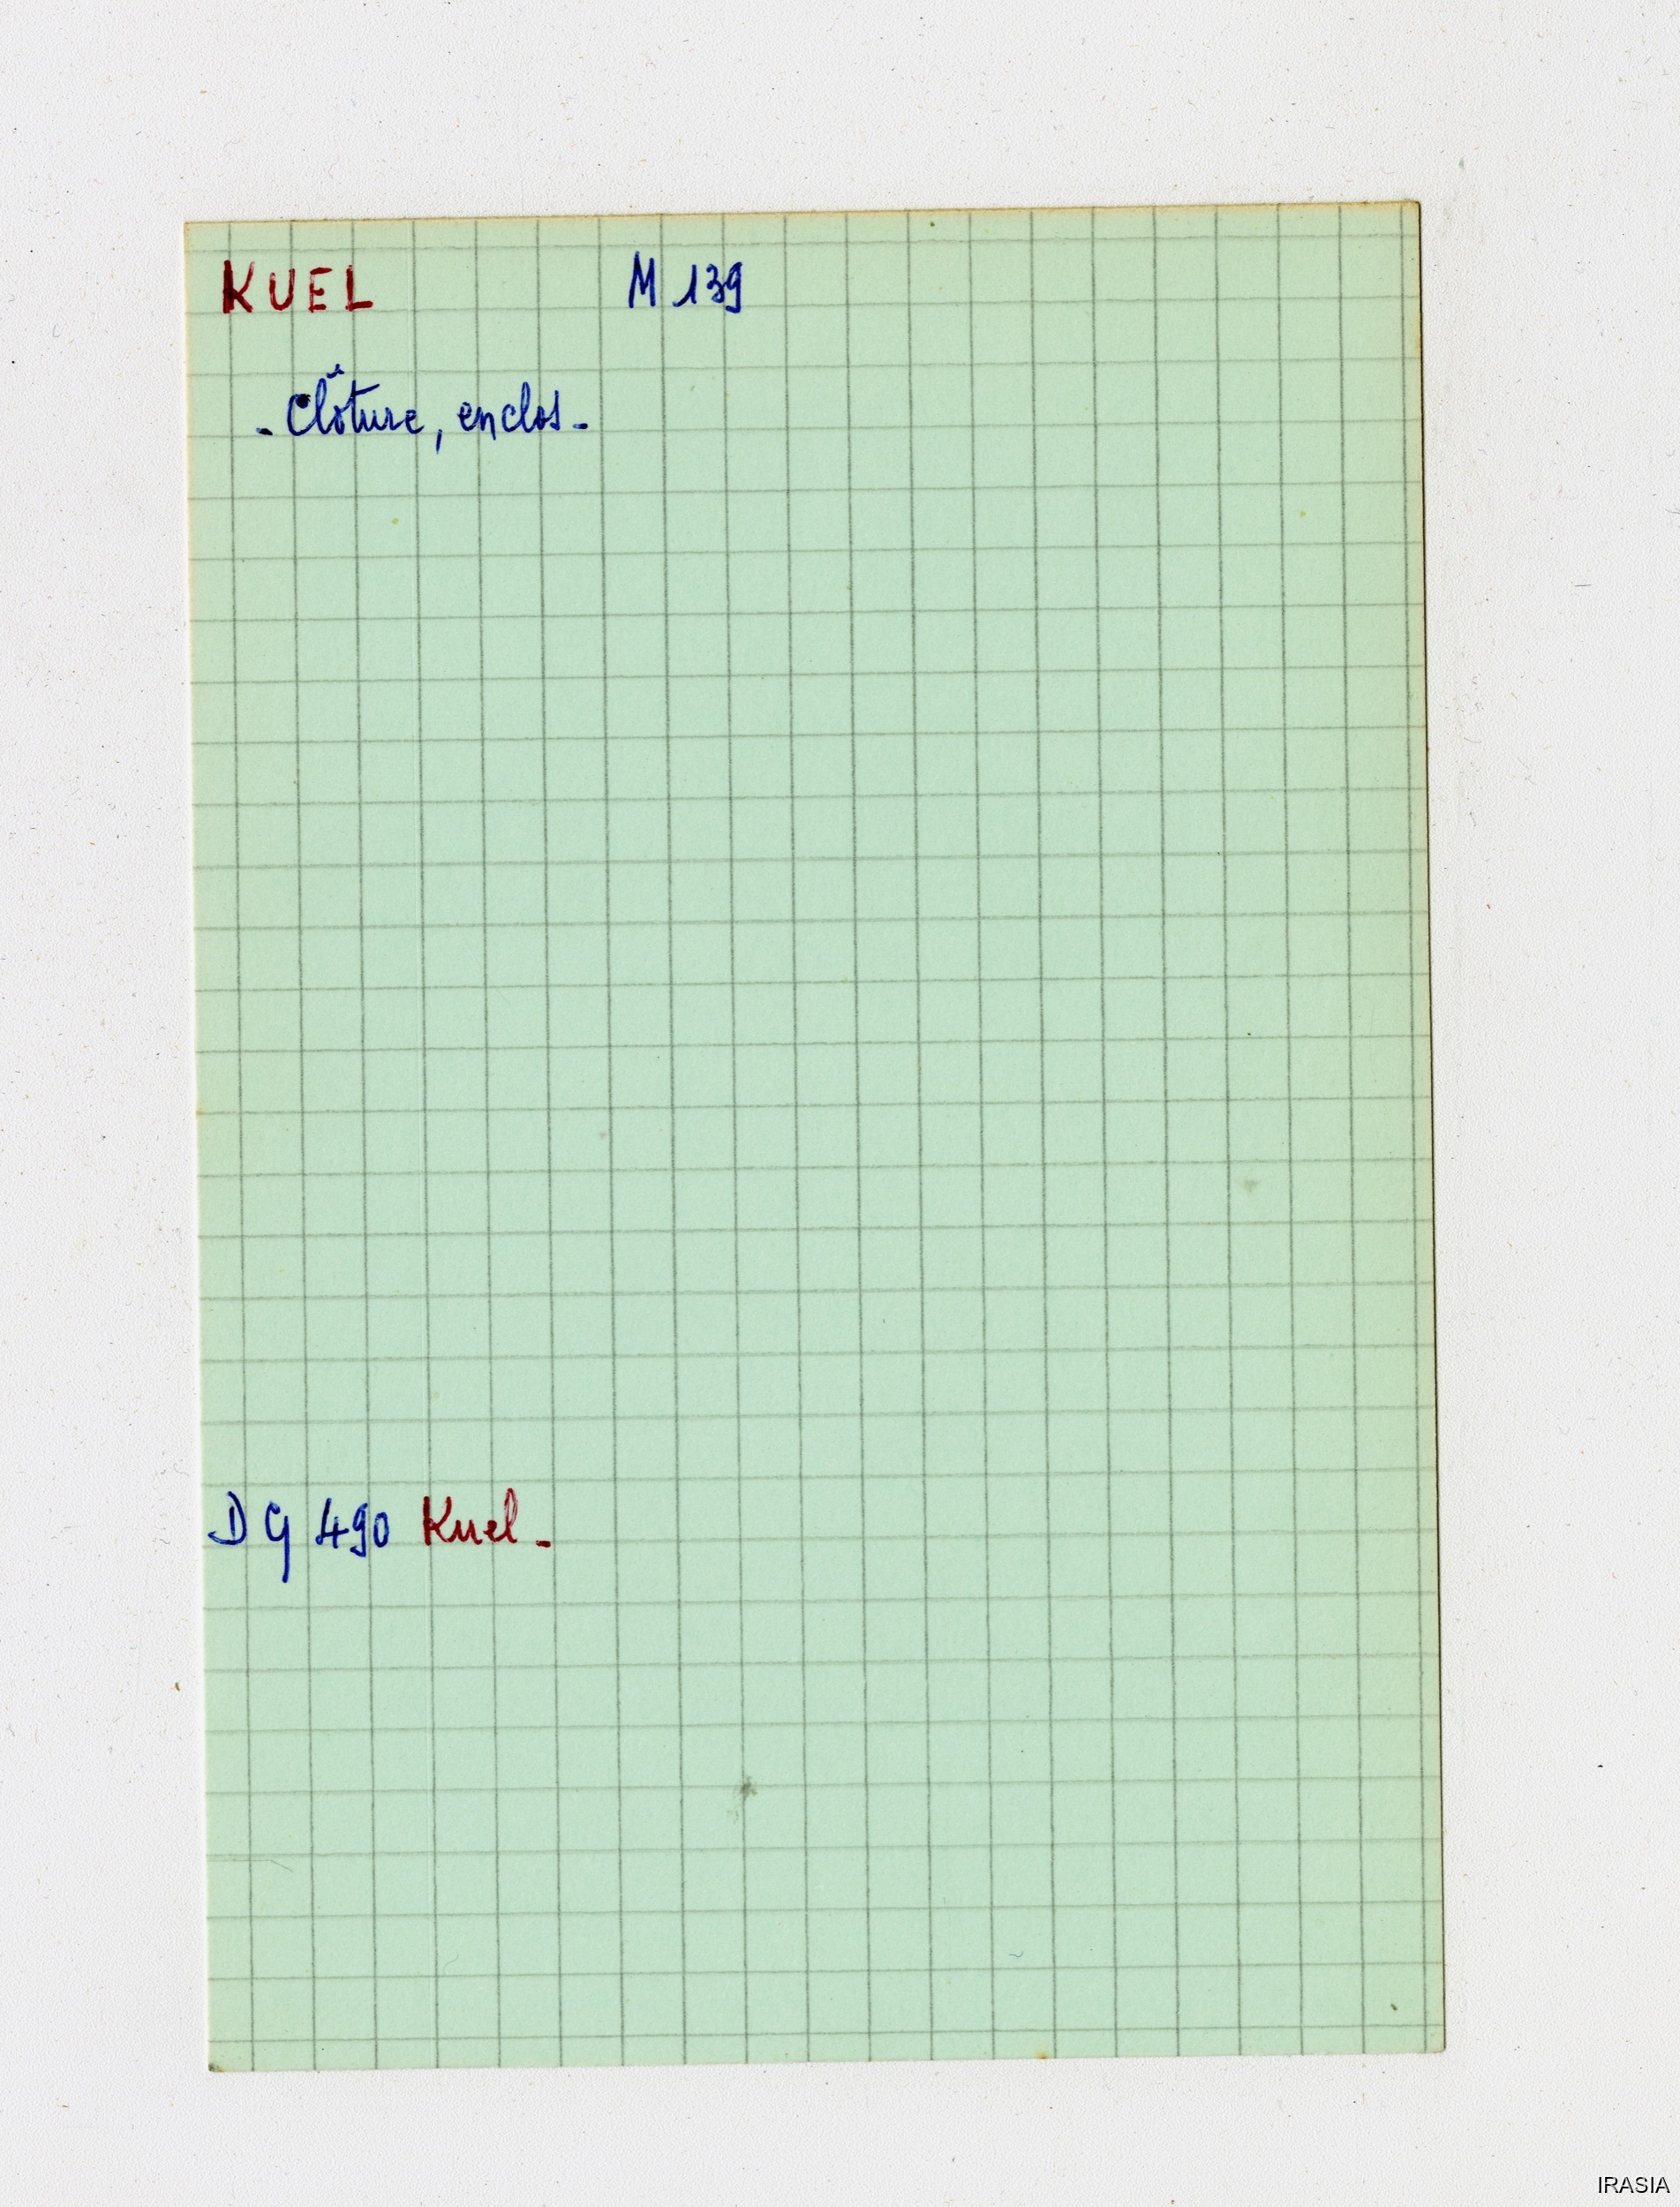 KUEL M 139
- Clôture, enclos -
DG 490 Kuel -
IRASIA